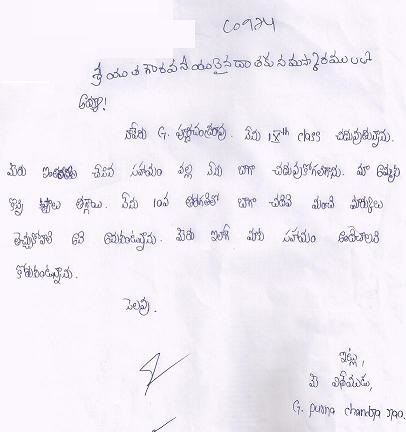 C0924
శ్రీయుత గౌరవనీయులైన దాతకు నమస్కారములు
అయ్యా!
నాపేరు G. పూర్ణచంద్రరావు. నేను IXth class చదువుతున్నాను.
మీరు ఇంతవరకు చేసిన సహాయం వల్ల నేను బాగా చదువుకోగలిగాను. మా అమ్మకు
కొన్ని కష్టాలు తగ్గాయి. నేను 10వ తరగతిలో బాగా చదివి మంచి మార్కులు
తెచ్చుకోవాలి అని అనుకుంటున్నాను. మీరు ఇలాగే మాకు సహాయం అందించాలని
కోరుకుంటున్నాను.
సెలవు.
ఇట్లు,
మీ విధేయుడు,
G. purna chandra rao.